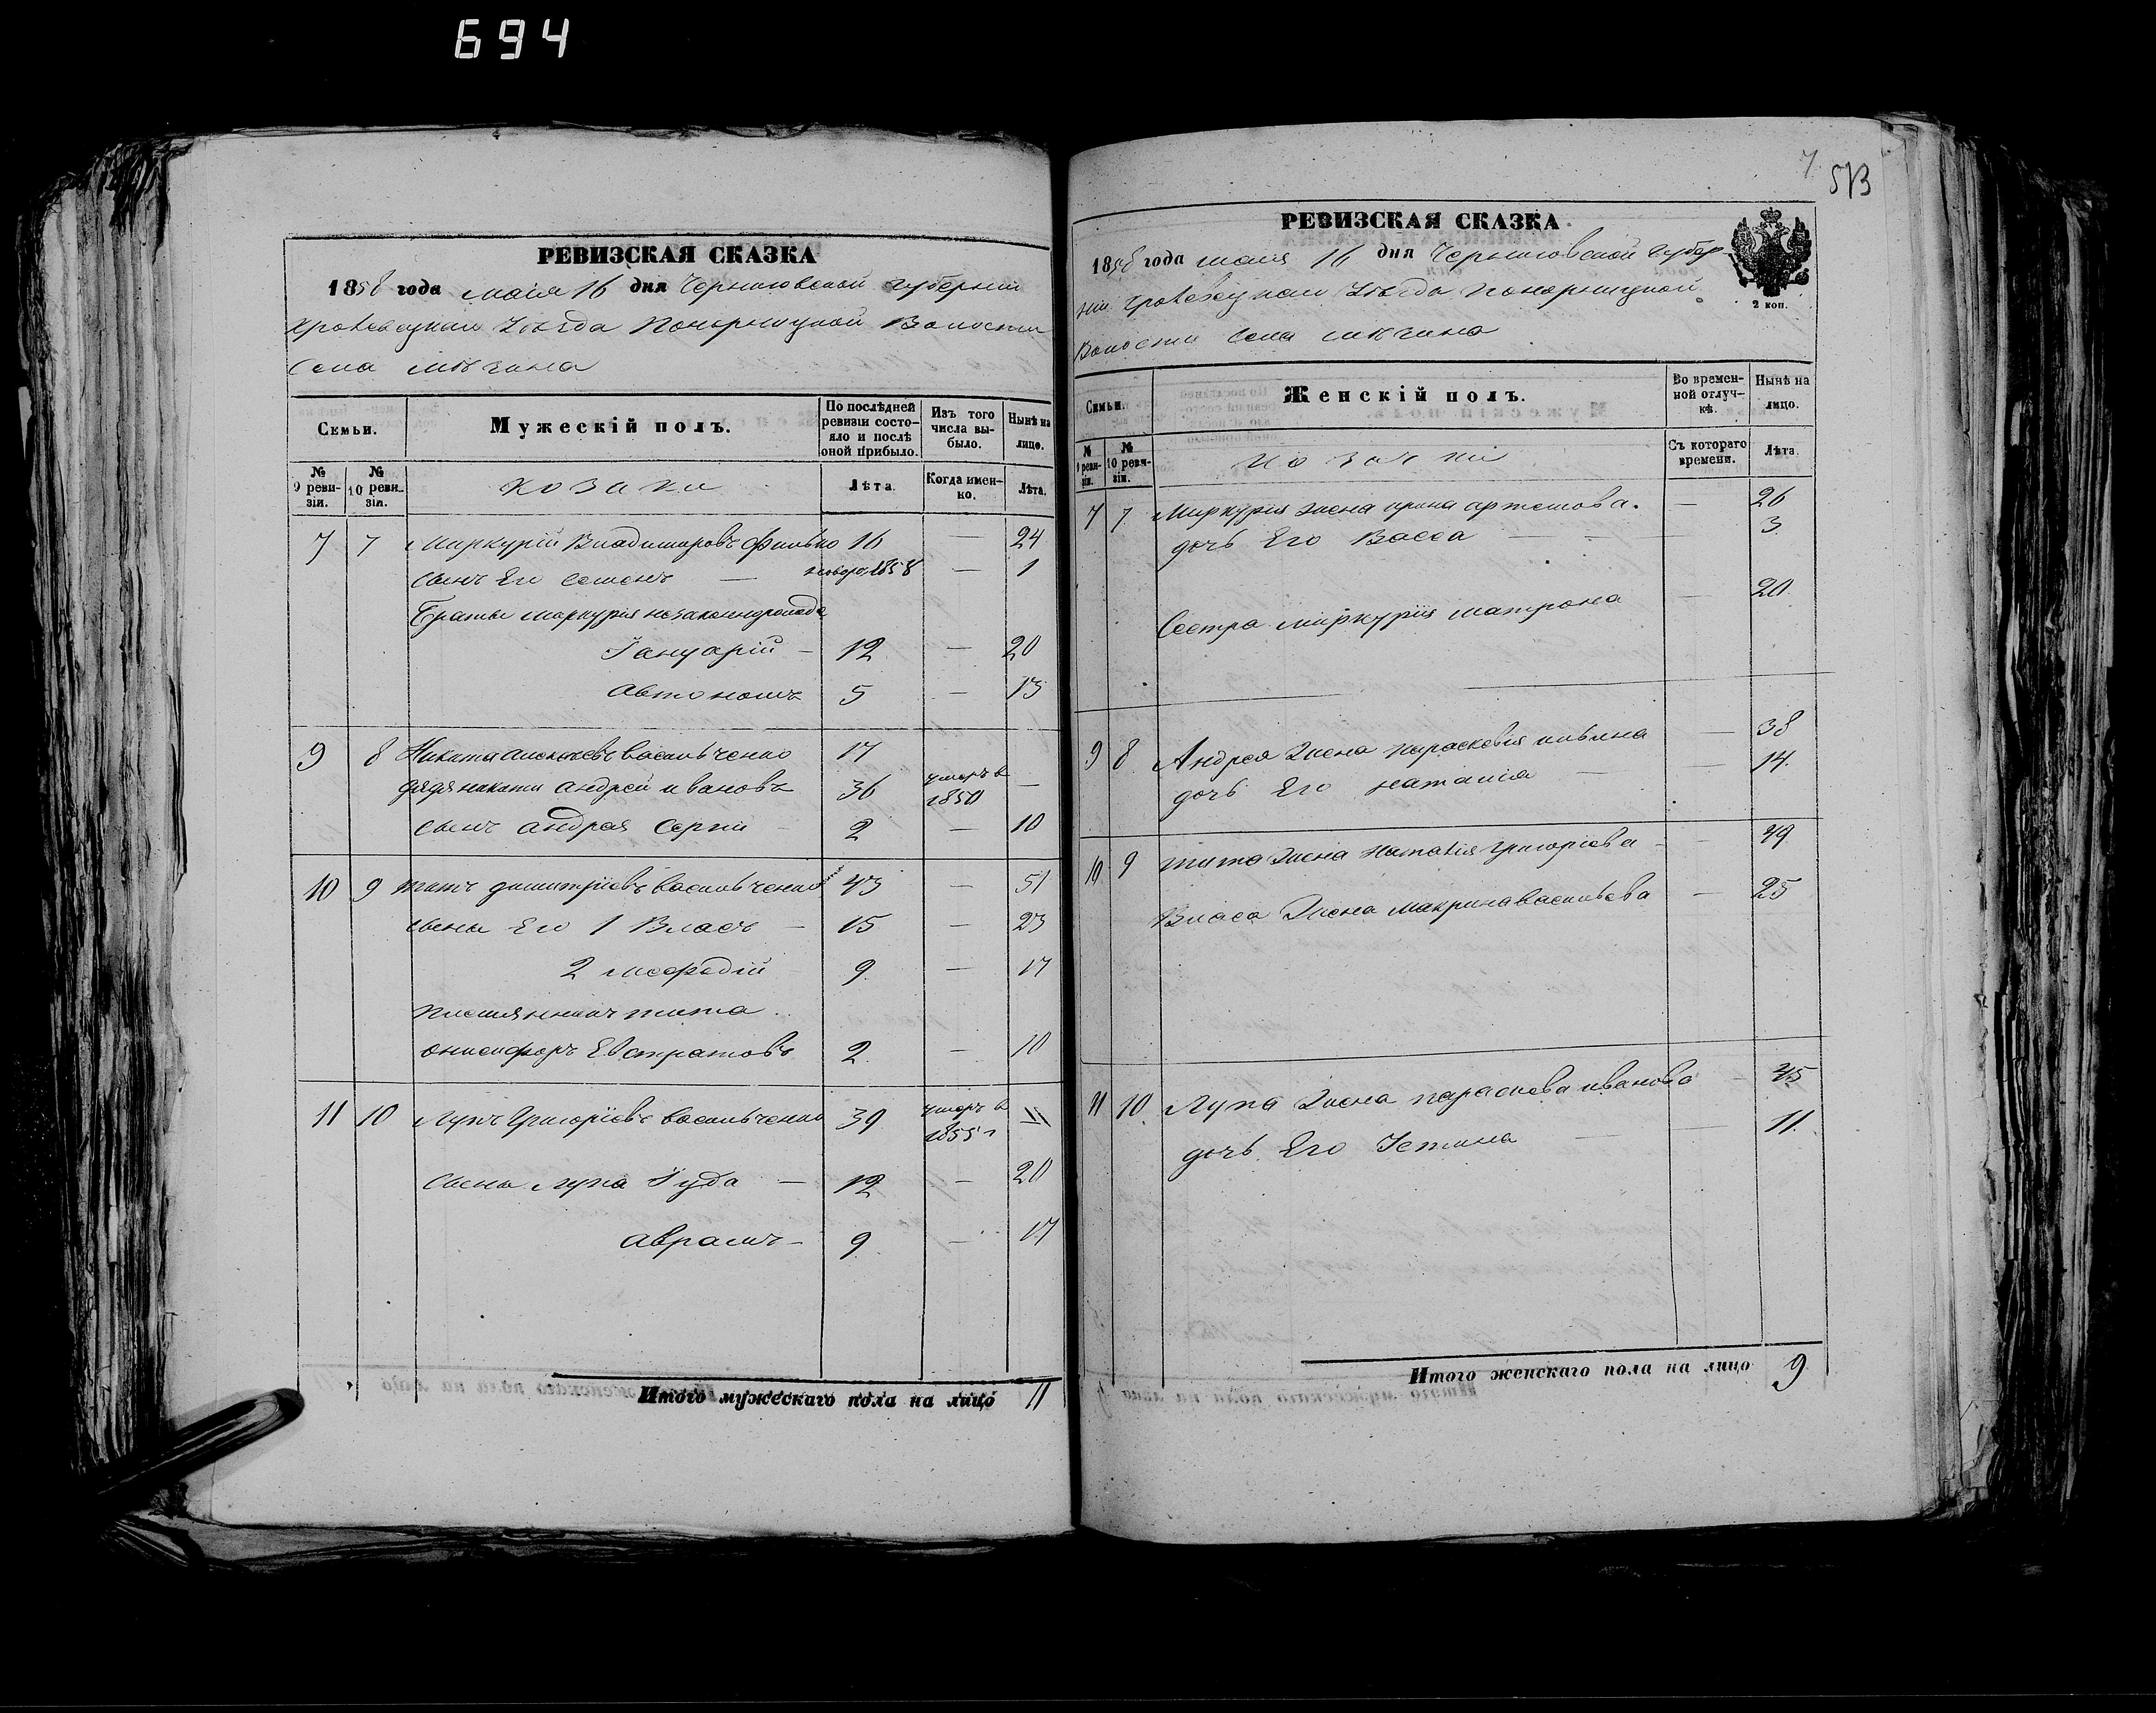 694
РЕВИЗСКАЯ СКАЗКА
1858 года маія 16 дня Черниговской губерніи
Кролевецкаго Уѣзда Понорницкой Волости
Села Мѣзина
Семьи.
Мужескій полъ.
По послѣдней ревизіи состояло и послѣ оной прибыло.
Изъ того числа выбыло.
Нынѣ на лицо.
№ 9 ревизіи.
№ 10 ревизіи.
козаки
Лѣта.
Когда именно.
Лѣта.
7 7 Меркурій Владимировъ 16 — 24
сынъ Его Семенъ — 1858 — 1
Братья Меркурія
Іануарій — 12 — 20
Автономъ 5 — 13
9 8 Никита Алексѣевъ Васильченко 17
дядя Никиты Андрей Ивановъ 36 умеръ в 1850 —
сынъ Андрея Сергій 2 — 10
10 9 Титъ Димитріевъ Васильченко 43 — 51
сыны Его 1 Власъ — 15 — 23
2 Мефодій 9 — 17
племянникъ Тита
Онисифоръ Евстратовъ 2 — 10
11 10 Лупъ Григоріевъ Васильченко 39 умеръ в 1855 г
сыны Лупа Іуда — 12 — 20
Аврамъ — 9 — 17
Итого мужескаго пола на лицо 11
7
513
РЕВИЗСКАЯ СКАЗКА
1858 года маія 16 дня Черниговской губер-
ніи Кролевецкаго Уѣзда Понорницкой
Волости Села Мѣзина
2 коп.
Семьи.
Женскій полъ.
Во временной отлучкѣ.
Нынѣ на лицо.
№ 9 ревизіи.
№ 10 ревизіи.
козачки
Съ котораго времени.
Лѣта.
7 7 Меркурія жена Ирина Артемова — 26
дочь Его Васса — 3
Сестра Меркурія Матрона — 20
9 8 Андрея жена Парасковія — 38
дочь Его Наталія — 14
10 9 Тита жена Наталія Григоріева — 49
Власа жена Макрина Васильева — 25
11 10 Лупа жена Параскева Иванова — 45
дочь Его Устина — 11
Итого женскаго пола на лицо 9